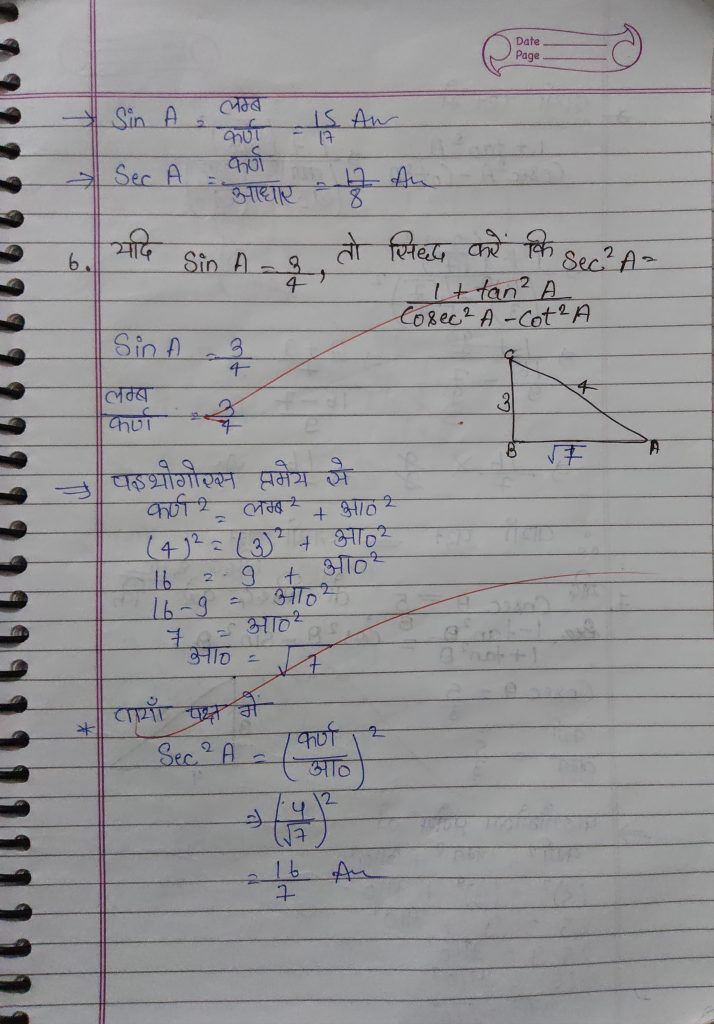 Date
Page
→ Sin A = लम्ब / कर्ण = 15/17 Ans
→ Sec A = कर्ण / आधार = 17/8 Ans
6. यदि Sin A = 3/4, तो सिद्ध करें कि Sec² A =
1 + tan² A / Cosec² A - Cot² A
Sin A = 3/4
लम्ब / कर्ण = 3/4
C
3
4
B
√7
A
⇒ पाइथोगोरस प्रमेय से
कर्ण² = लम्ब² + आ०²
(4)² = (3)² + आ०²
16 = 9 + आ०²
16 - 9 = आ०²
7 = आ०²
आ० = √7
* बायाँ पक्ष में
Sec² A = (कर्ण / आ०)²
⇒ (4/√7)²
= 16/7 Ans